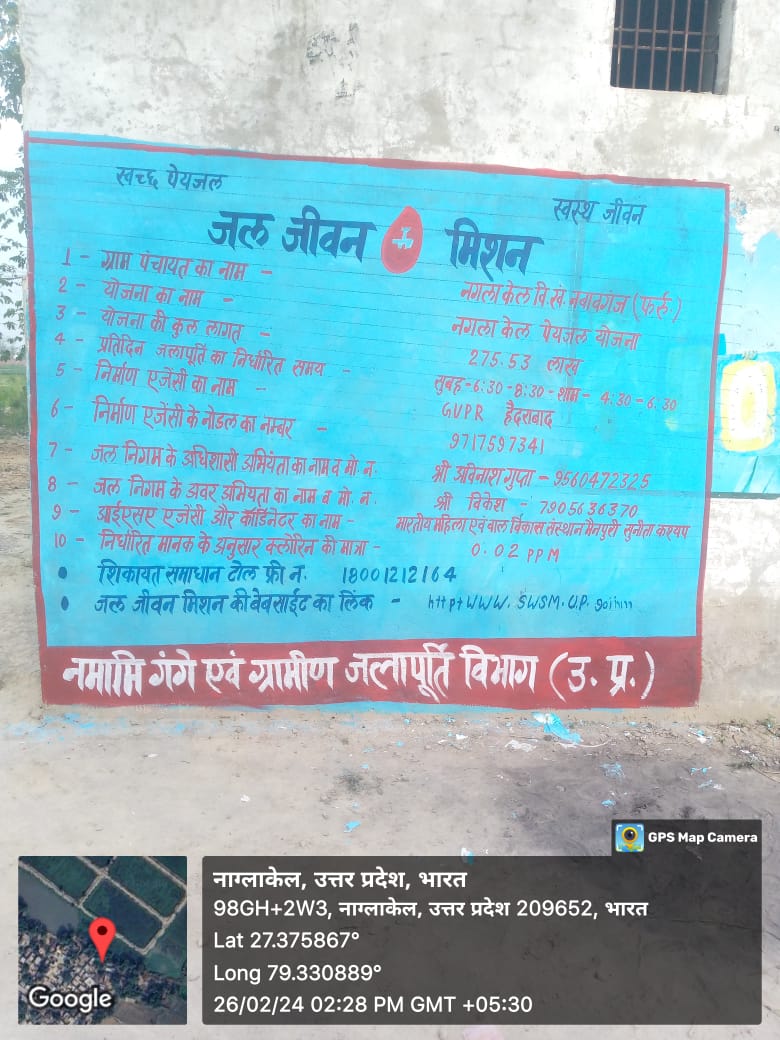 स्वच्छ पेयजल
स्वस्थ जीवन
जल जीवन मिशन
1 - ग्राम पंचायत का नाम - नगला केल वि.ख. नबावगंज (फर्रु.)
2 - योजना का नाम - नगला केल पेयजल योजना
3 - योजना की कुल लागत - 275.53 लाख
4 - प्रतिदिन जलापूर्ति का निर्धारित समय - सुबह-6:30-8:30-शाम-4:30-6:30
5 - निर्माण एजेंसी का नाम - GVPR हैदराबाद
6 - निर्माण एजेंसी के नोडल का नम्बर - 9717597341
7 - जल निगम के अधिशासी अभियंता का नाम व मो. न. श्री अविनाश गुप्ता - 9560472325
8 - जल निगम के अवर अभियता का नाम व मो. न. श्री विकेश - 7905636370
9 - आईएसए एजेंसी और कॉर्डिनेटर का नाम - भारतीय महिला एवं बाल विकास संस्थान मैनपुरी सुनीता कश्यप
10 - निर्धारित मानक के अनुसार क्लोरिन की मात्रा - 0.02 PPM
• शिकायत समाधान टोल फ्री न. 18001212164
• जल जीवन मिशन की वेबसाईट का लिंक - WWW. SWSM. U.P.
नमामि गंगे एवं ग्रामीण जलापूर्ति विभाग (उ. प्र.)
GPS Map Camera
नाग्लाकेल, उत्तर प्रदेश, भारत
98GH+2W3, नाग्लाकेल, उत्तर प्रदेश 209652, भारत
Lat 27.375867°
Long 79.330889°
26/02/24 02:28 PM GMT +05:30
Google